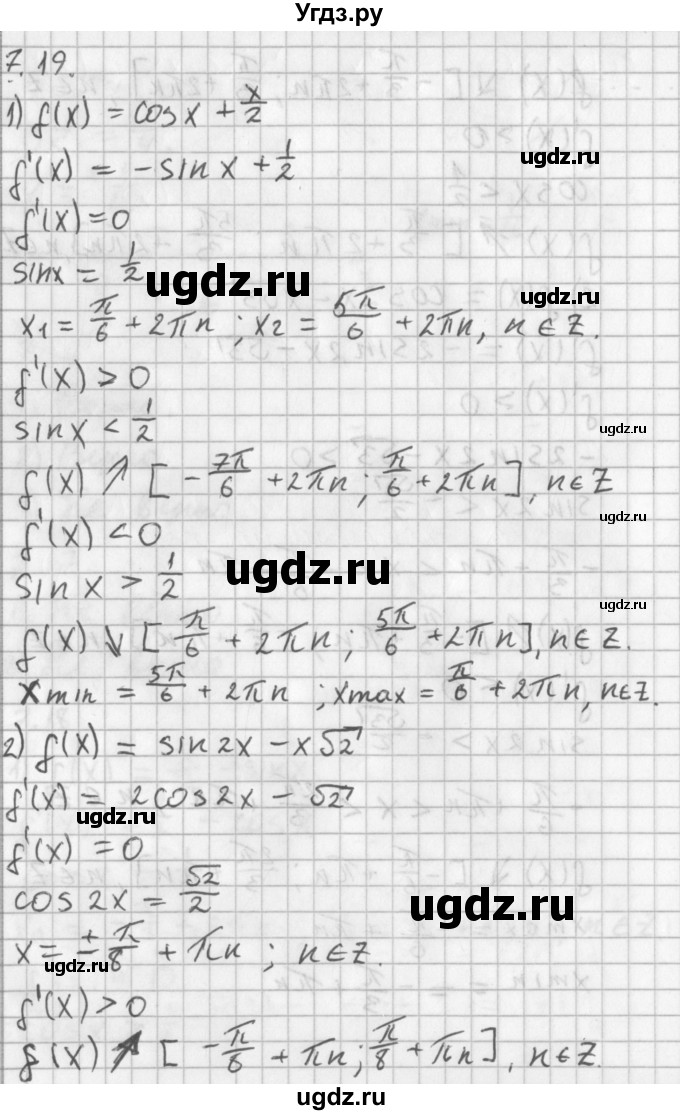 Угдз.ру
7.19.
1) f(x) = cosx + x/2
ugdz.ru
f'(x) = -sinx + 1/2
f'(x) = 0
sinx = 1/2
ugdz.ru
x1 = π/6 + 2πn ; x2 = 5π/6 + 2πn, n∈Z.
f'(x) > 0
sinx < 1/2
ugdz.ru
f(x) ↗ [-7π/6 + 2πn ; π/6 + 2πn], n∈Z
f'(x) < 0
ugdz.ru
sinx > 1/2
ugdz.ru
f(x) ↘ [π/6 + 2πn ; 5π/6 + 2πn], n∈Z.
xmin = 5π/6 + 2πn ; xmax = π/6 + 2πn, n∈Z.
2) f(x) = sin2x - x√2
ugdz.ru
f'(x) = 2cos2x - √2
ugdz.ru
f'(x) = 0
cos2x = √2/2
ugdz.ru
x = ±π/8 + πn ; n∈Z.
ugdz.ru
f'(x) > 0
f(x) ↗ [-π/8 + πn ; π/8 + πn], n∈Z.
ugdz.ru